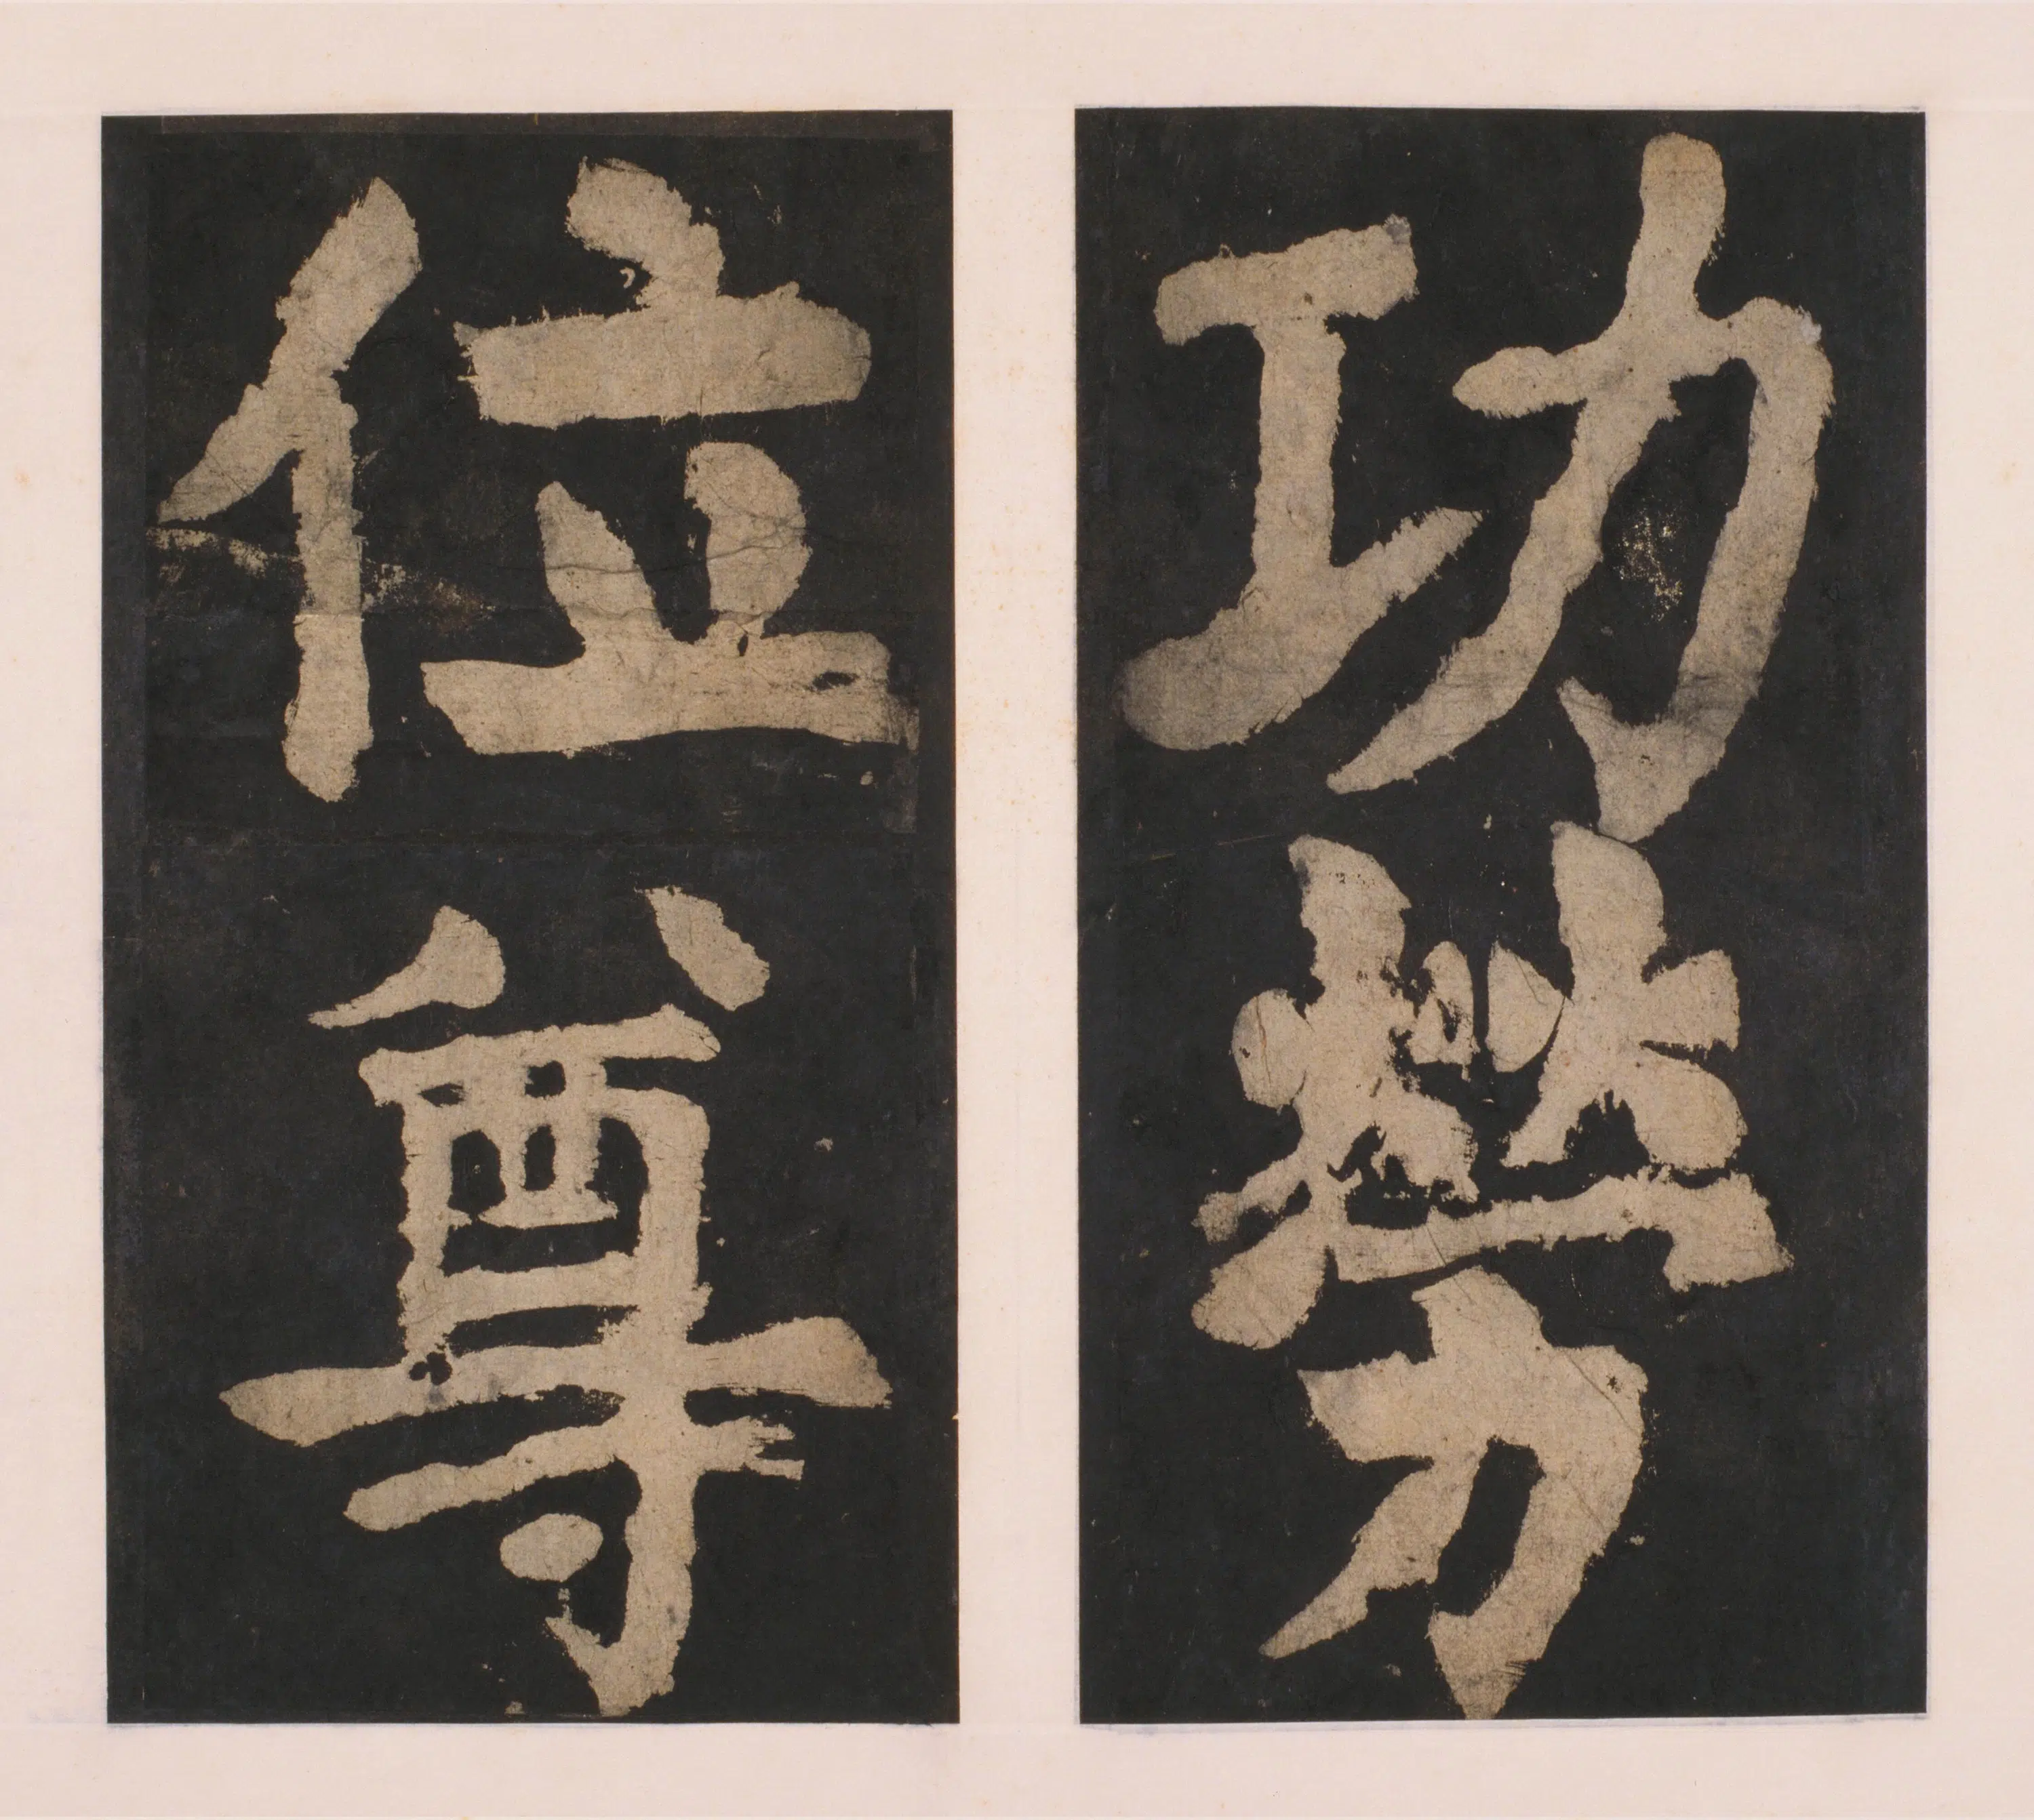 功勞
位尊